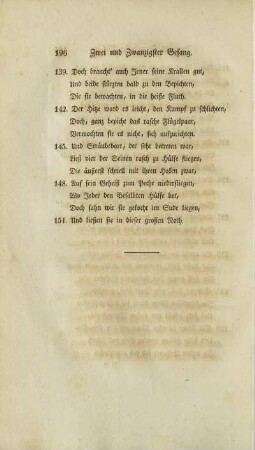 196 Zwei und Zwanzigster Gesang.
139. Doch braucht' auch Jener seine Krallen gut,
Und beide stürzten bald zu den Bepichten,
Die sie bewachten, in die heiße Fluth.
142. Der Hitze ward es leicht, den Kampf zu schlichten,
Doch, ganz bepicht das rasche Flügelpaar,
Vermochten sie es nicht, sich aufzurichten.
145. Und Sträubebart, der sehr betreten war,
Ließ vier der Seinen rasch zu Hülfe fliegen,
Die äußerst schnell mit ihren Haken zwar,
148. Auf sein Geheiß zum Peche niederstiegen,
Wo Jeder den Besalbten Hülfe bot,
Doch sahn wir sie gekocht im Sude liegen,
151. Und ließen sie in dieser großen Noth.